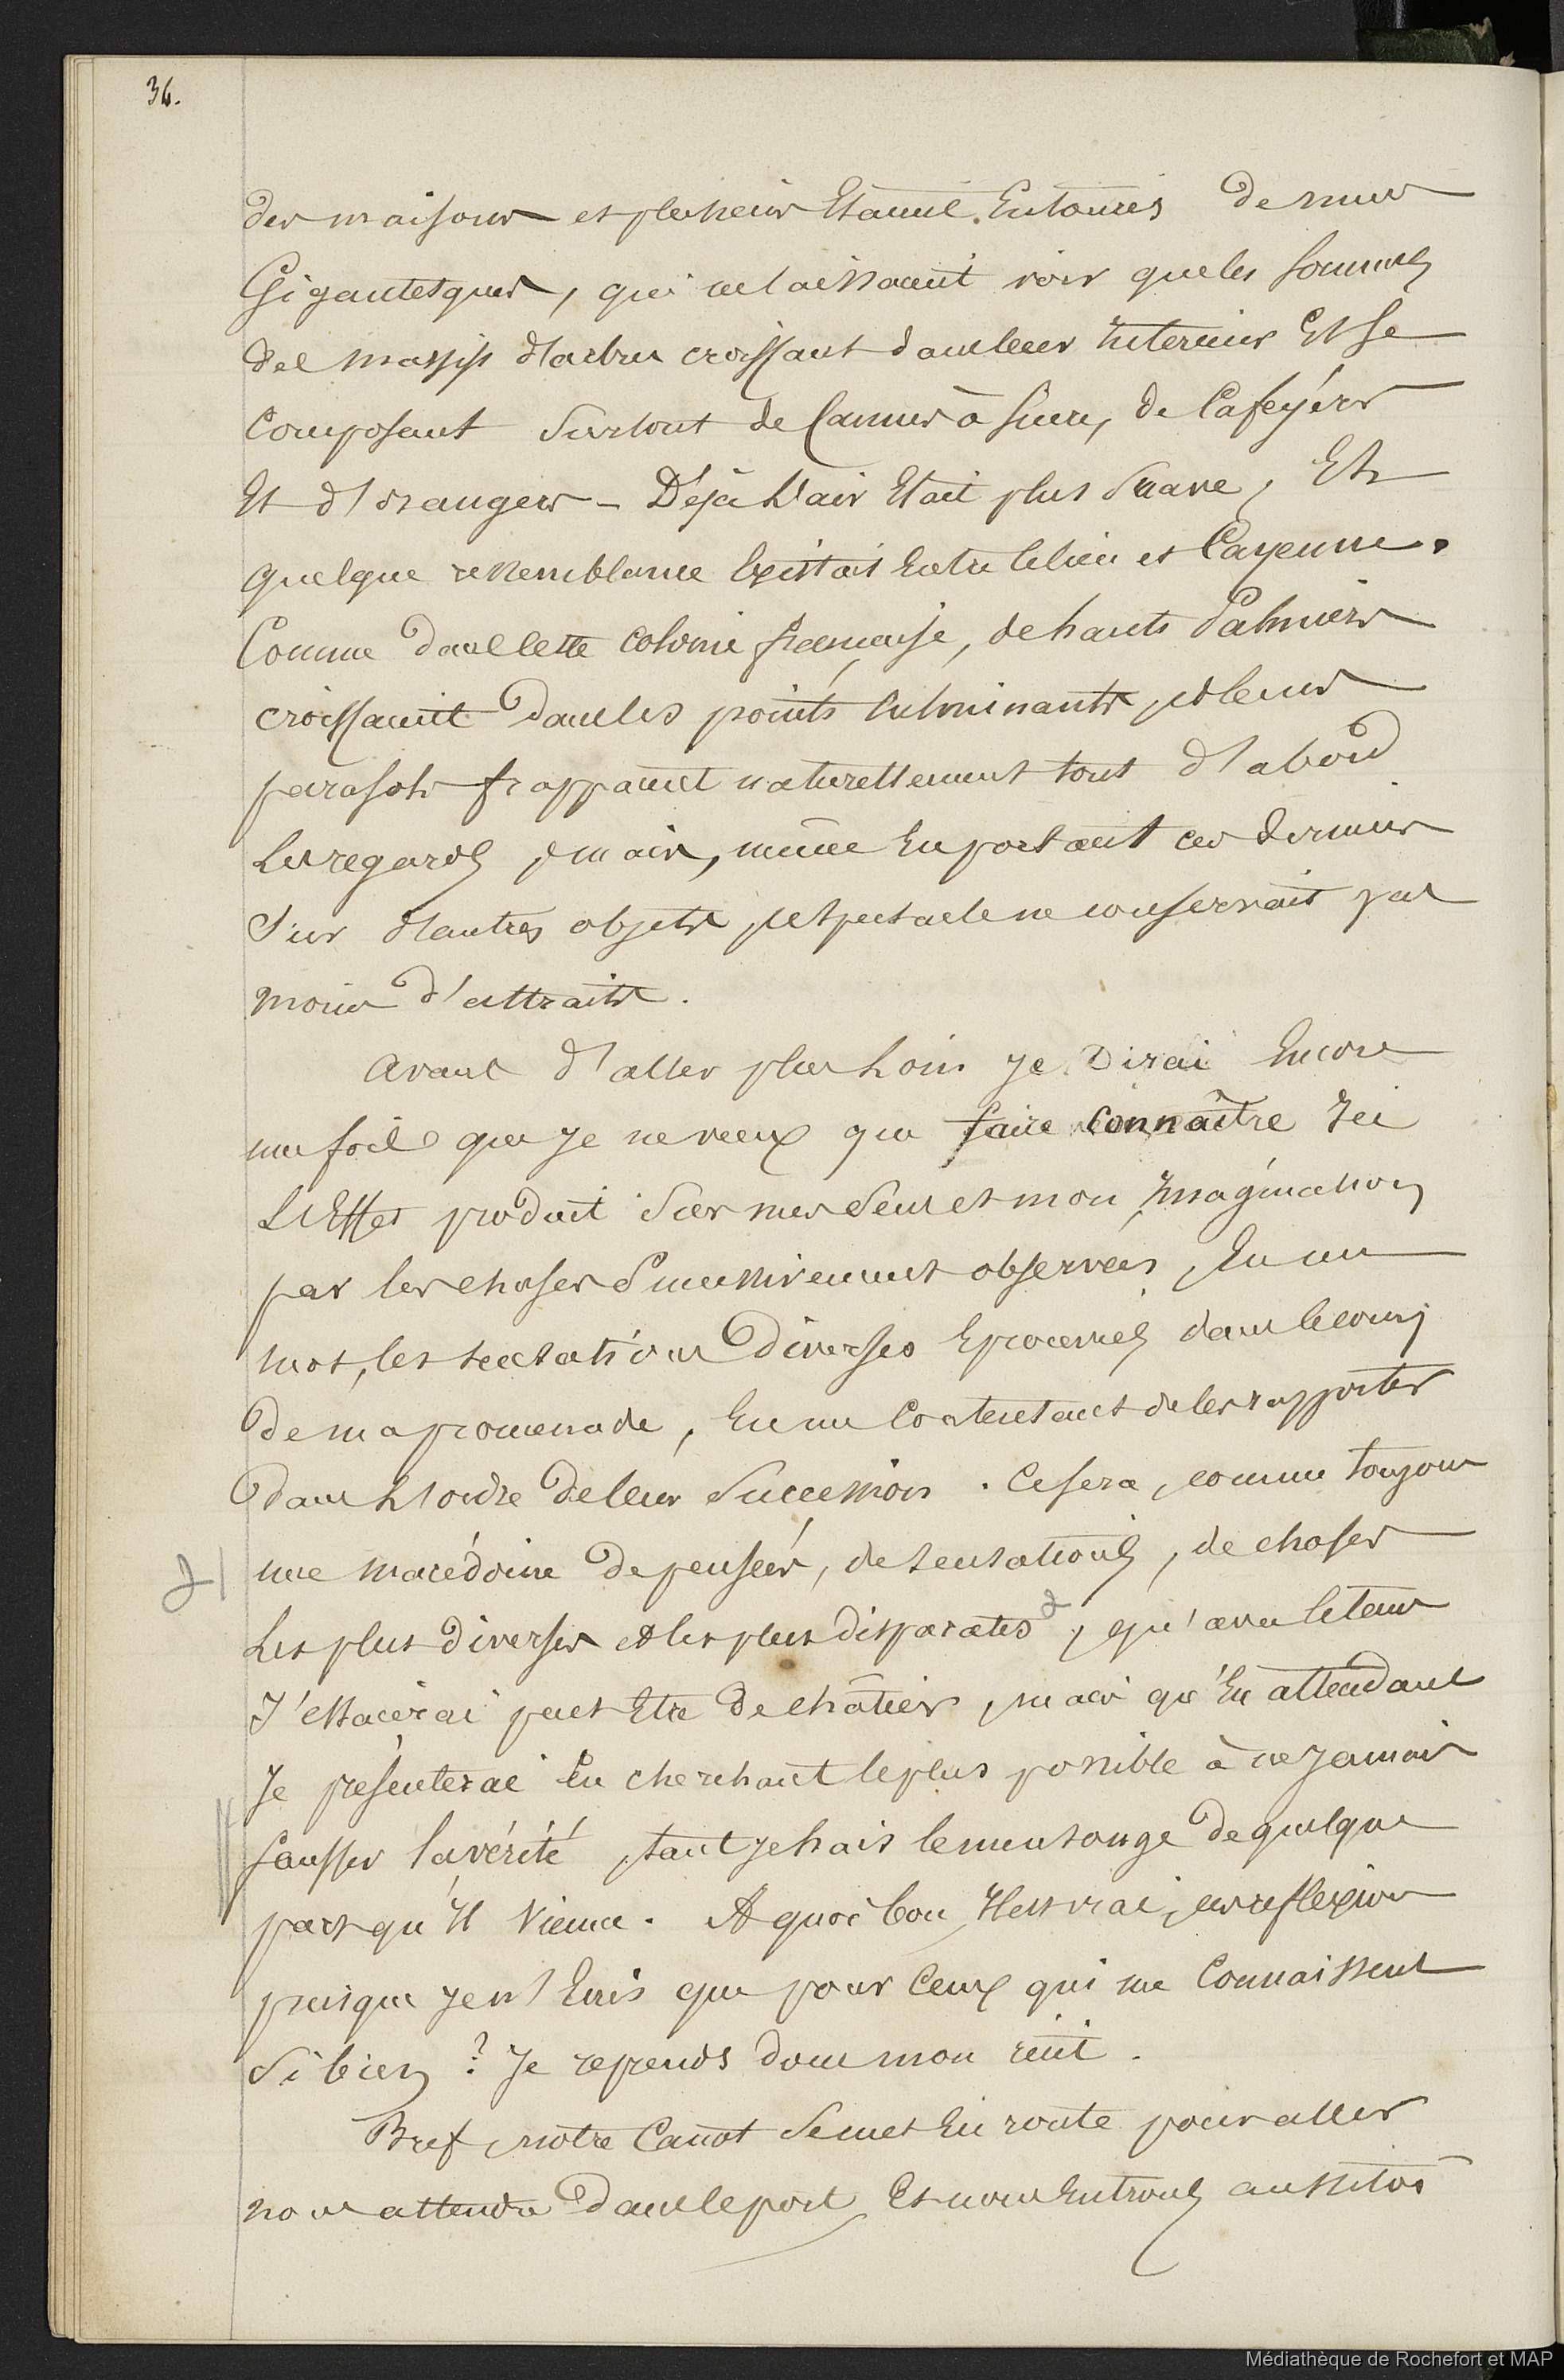 36.
des maisons et plusieurs Etaient Entourées de murs
Gigantesques, qui ne laissaient voir que les sommets
des massifs d'arbres croissant dans leur Intérieur Et se
Composant surtout de Cannes à sucre, de Cafeyérs
Et d'orangers - Déjà L'air Etait plus suave, Et
quelque ressemblance Existait Entre le lieu et Cayenne.
Comme dans cette colonie française, de hauts Palmiers
croissaient dans les points culminants, et leurs
parasols frappaient naturellement tout d'abord
Les regards, mais, même En portant ces derniers
sur d'autres objets, le spectacle ne conservait pas
moins d'attraits.
Avant d'aller plus Loin je Dirai Encore
une fois que je ne veux que faire connaître Ici
L'Effet produit sur mes sens et mon Imagination
par les choses successivement observées, En un
mot, les sensations Diverses Eprouvées dans le cours
De ma promenade, En me Contentant de les rapporter
Dans L'ordre de leur succession. Ce sera, comme toujours
une macédoine de pensées, de sensations, de choses
Les plus Diverses et les plus disparates, qu'avec le tems
J'essaierai peut Etre De châtier, mais qu'En attendant
Je présenterai En cherchant le plus possible à ne jamais
fausser la vérité, tant je hais le mensonge De quelque
part qu'Il Vienne. A quoi bon, Il est vrai, ces reflexions
puisque je n'Ecris que pour Ceux qui me Connaissent
si bien ? Je reprends donc mon récit.
Bref, notre Canot se met En route pour aller
nous attendre Dans le port, Et nous Entrons aussitôt
Médiathèque de Rochefort et MAP